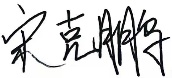 宋克鹏